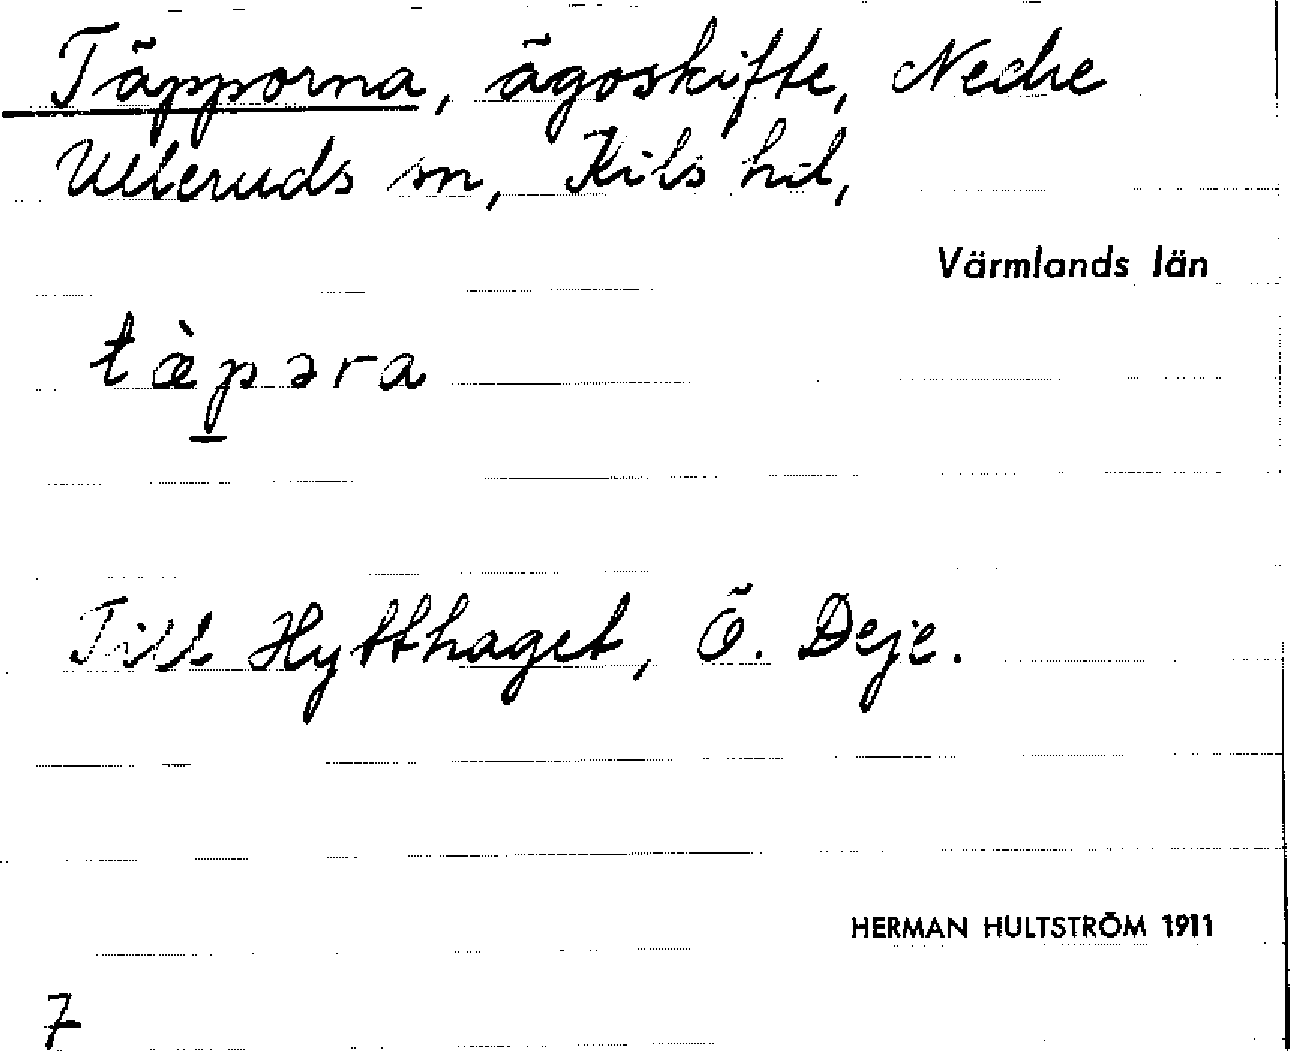 Täpporna, ägoskifte, Nedre
Ulleruds sn, Kils hd,
Värmlands län
tæ̀pəra
Till Hytthaget, Ö. Deje.
HERMAN HULTSTRÖM 1911
7